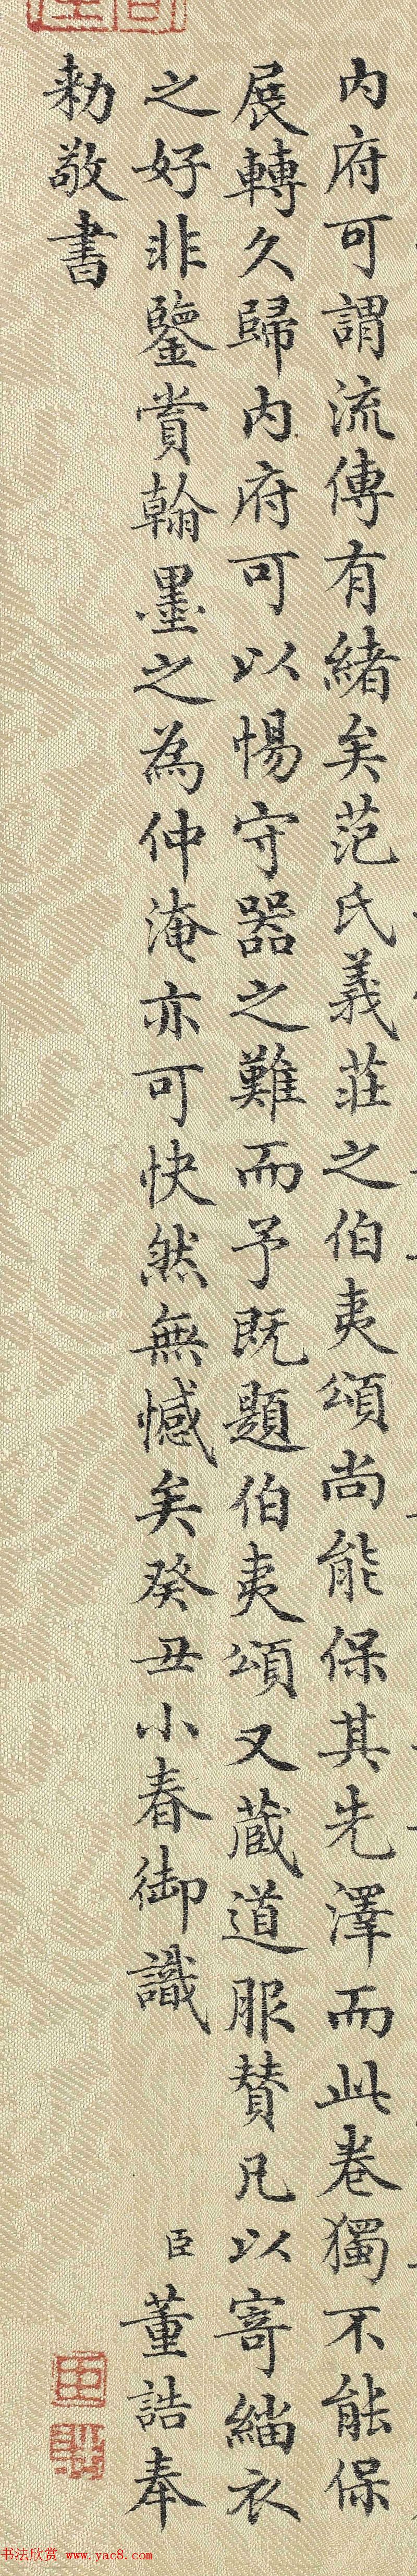 內府可謂流傳有緒矣范氏義莊之伯夷頌尚能保其先澤而此卷獨不能保
展轉久歸內府可以惕守器之難而予既題伯夷頌又蔵道服贊凡以寄緇衣
之好非鑒賞翰墨之為仲淹亦可快然無憾矣癸丑小春御識 臣董誥奉
勅敬書
书法欣赏 www.yac8.com